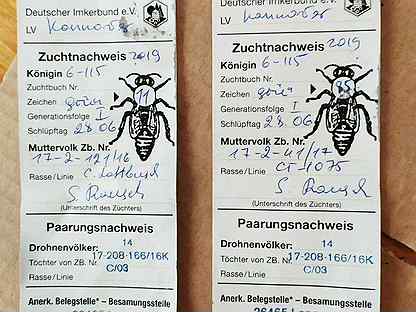 Deutscher Imkerbund e.V.
LV Hannover
Zuchtnachweis 2019
Königin 6-115
Zuchtbuch Nr.
Zeichen grün 11
Generationsfolge I
Schlüpftag 28.06
Muttervolk Zb. Nr.
17-2-121/16
Rasse/Linie C.
S.
(Unterschrift des Züchters)
Paarungsnachweis
Drohnenvölker: 14
Töchter von ZB. Nr. 17-208-166/16K
Rasse/Linie C/03
Anerk. Belegstelle* – Besamungsstelle
Deutscher Imkerbund e.V.
LV Hannover
Zuchtnachweis 2019
Königin 6-115
Zuchtbuch Nr.
Zeichen grün 85
Generationsfolge I
Schlüpftag 28.06
Muttervolk Zb. Nr.
17-2-41/17
Rasse/Linie CT-1075
S.
(Unterschrift des Züchters)
Paarungsnachweis
Drohnenvölker: 14
Töchter von ZB. Nr. 17-208-166/16K
Rasse/Linie C/03
Anerk. Belegstelle* – Besamungsstelle